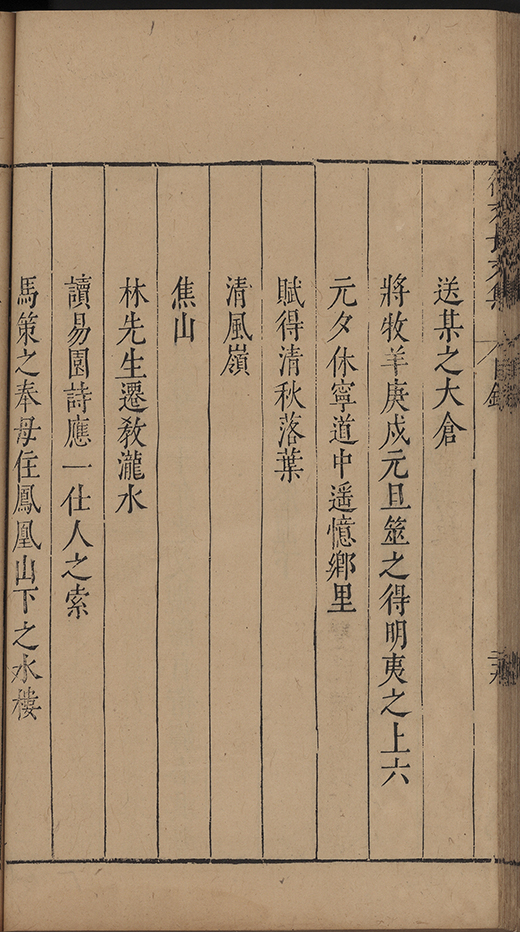 送某之大倉
將牧羊庚戍元旦筮之得明夷之上六
元夕休寧道中遥憶鄉里
賦得清秋落葉
清風嶺
焦山
林先生遷敎瀧水
讀易園詩應一仕人之索
馬策之奉母住鳳凰山下之水樓